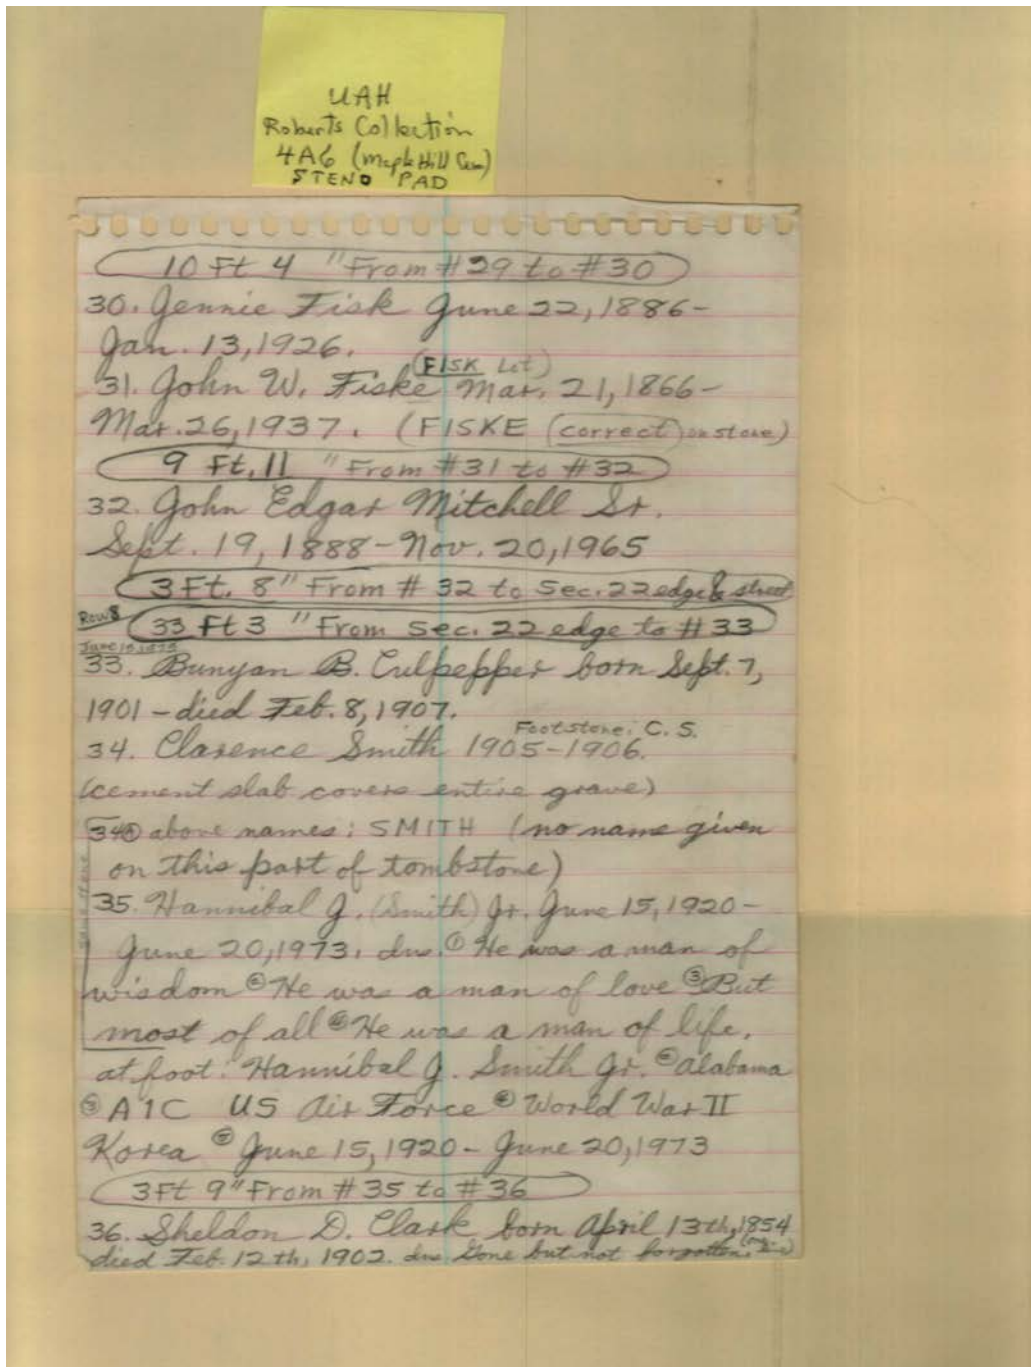 UAH
Roberts Collection
4A6 (Maple Hill Cem)
STENO PAD
10 Ft 4 " From #29 to #30
30. Jennie Fisk June 22, 1886 -
Jan. 13, 1926.
(FISK Lot)
31. John W. Fiske Mar. 21, 1866 -
Mar. 26, 1937. (FISKE (correct) on stone)
9 Ft. 11 " From #31 to #32
32. John Edgar Mitchell Sr.
Sept. 19, 1888 - Nov. 20, 1965
3 Ft. 8" From # 32 to Sec. 22 edge & street
Row 8
33 Ft 3 " From Sec. 22 edge to #33
June 15, 1975
33. Bunyan B. Culpepper born Sept. 7,
1901 - died Feb. 8, 1907.
Footstone: C. S.
34. Clarence Smith 1905-1906.
(cement slab covers entire grave)
34 above names: SMITH (no name given
on this part of tombstone)
same stone
35. Hannibal J. (Smith) Jr. June 15, 1920 -
June 20, 1973. ins. ① He was a man of
wisdom ② He was a man of love ③ But
most of all ④ He was a man of life.
at foot: Hannibal J. Smith Jr. ② Alabama
③ A1C US Air Force ④ World War II
Korea ⑤ June 15, 1920 - June 20, 1973
3 Ft 9" From #35 to #36
36. Sheldon D. Clark born April 13th, 1854
died Feb. 12th, 1902. ins Gone but not forgotten.